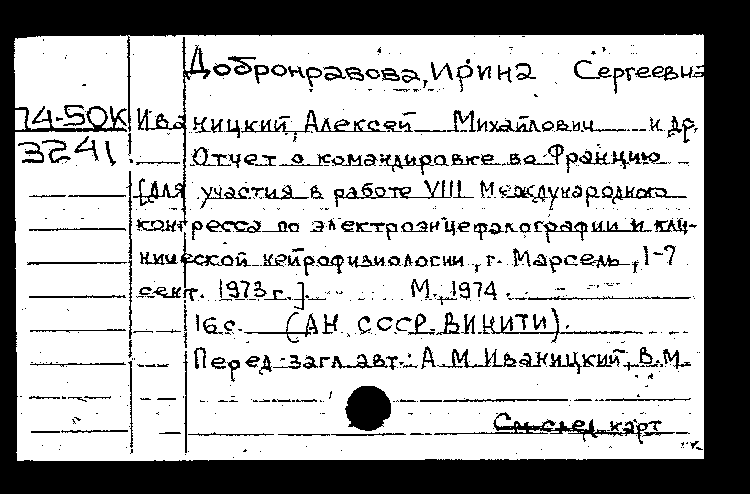 Добронравова, Ирина Сергеевна
74-50К Иваницкий, Алексей Михайлович и др.
3241 Отчет о командировке во Францию
[для участия в работе VIII Международного
конгресса по электроэнцефалографии и кли-
нической нейрофизиологии, г. Марсель, 1-7
сент. 1973 г.]. М., 1974.
16 с. (АН СССР. ВИНИТИ).
Перед загл. авт.: А.М. Иваницкий, В.М.
См. след. карт